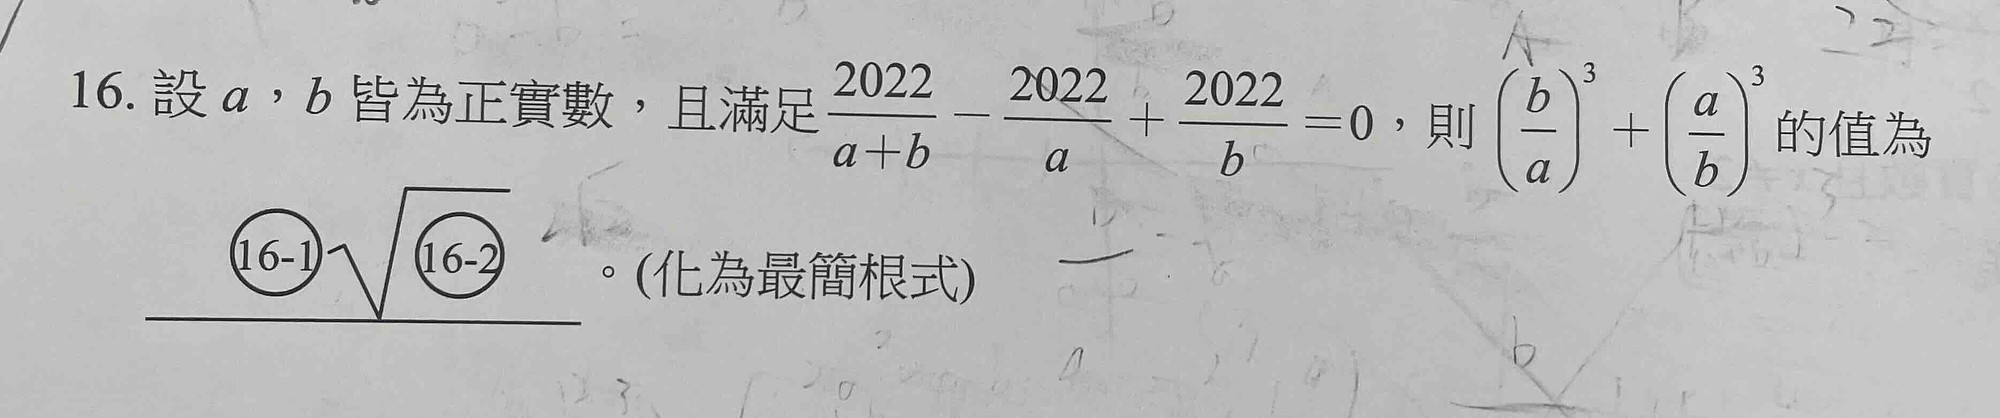 16. 設 a，b 皆為正實數，且滿足 2022/(a+b) − 2022/a + 2022/b =0，則 (b/a)³ + (a/b)³ 的值為
(16-1)√(16-2) 。(化為最簡根式)